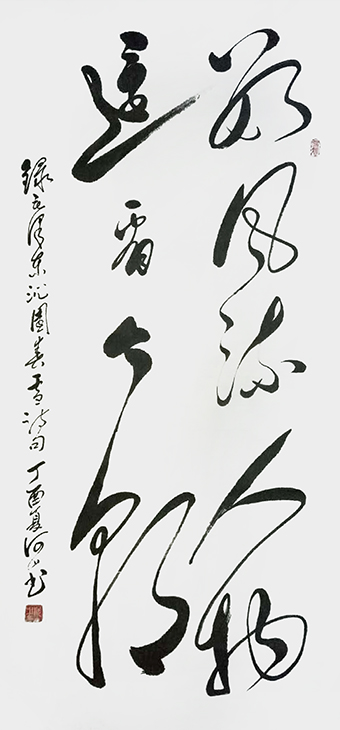 數風流人物
還看今朝
錄毛澤東沁園春雪詩句 丁酉夏 書